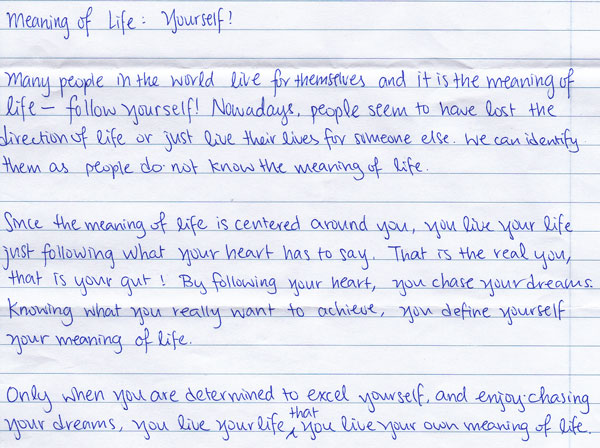 Meaning of Life: Yourself!
Many people in the world live for themselves and it is the meaning of
life — follow yourself! Nowadays, people seem to have lost the
direction of life or just live their lives for someone else. We can identify
them as people do not know the meaning of life.
Since the meaning of life is centered around you, you live your life
just following what your heart has to say. That is the real you,
that is your gut! By following your heart, you chase your dreams.
Knowing what you really want to achieve, you define yourself
your meaning of life.
Only when you are determined to excel yourself, and enjoy chasing
your dreams, you live your life that you live your own meaning of life.